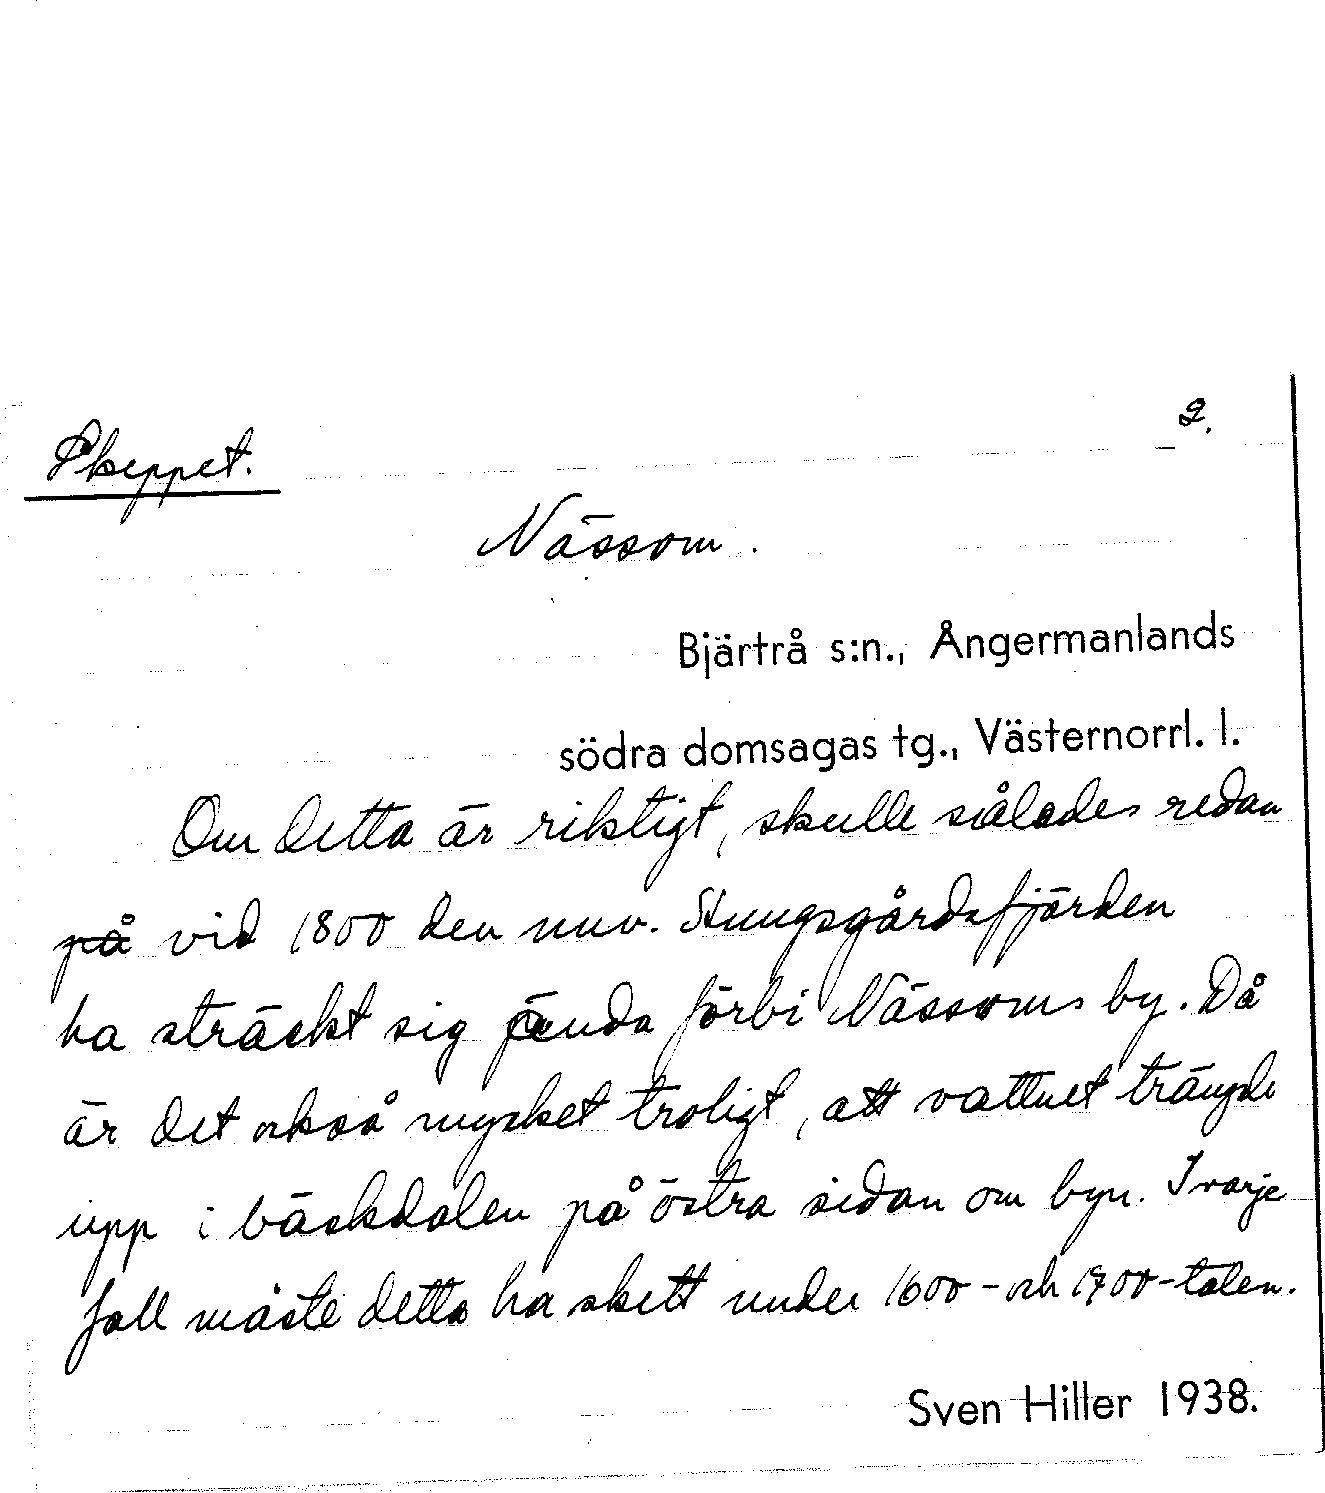 2.
Skeppet.
Nässom.
Bjärtrå s:n., Ångermanlands
södra domsagas tg., Västernorrl. l.
Om detta är riktigt, skulle således redan
på vid 1800 den nuv. Stungsgårdsfjärden
ha sträckt sig ända förbi Nässoms by. Då
är det också mycket troligt, att vattnet trängde
upp i bäckdalen på östra sidan om byn. I varje
fall måste detta ha skett under 1600- och 1700-talen.
Sven Hiller 1938.